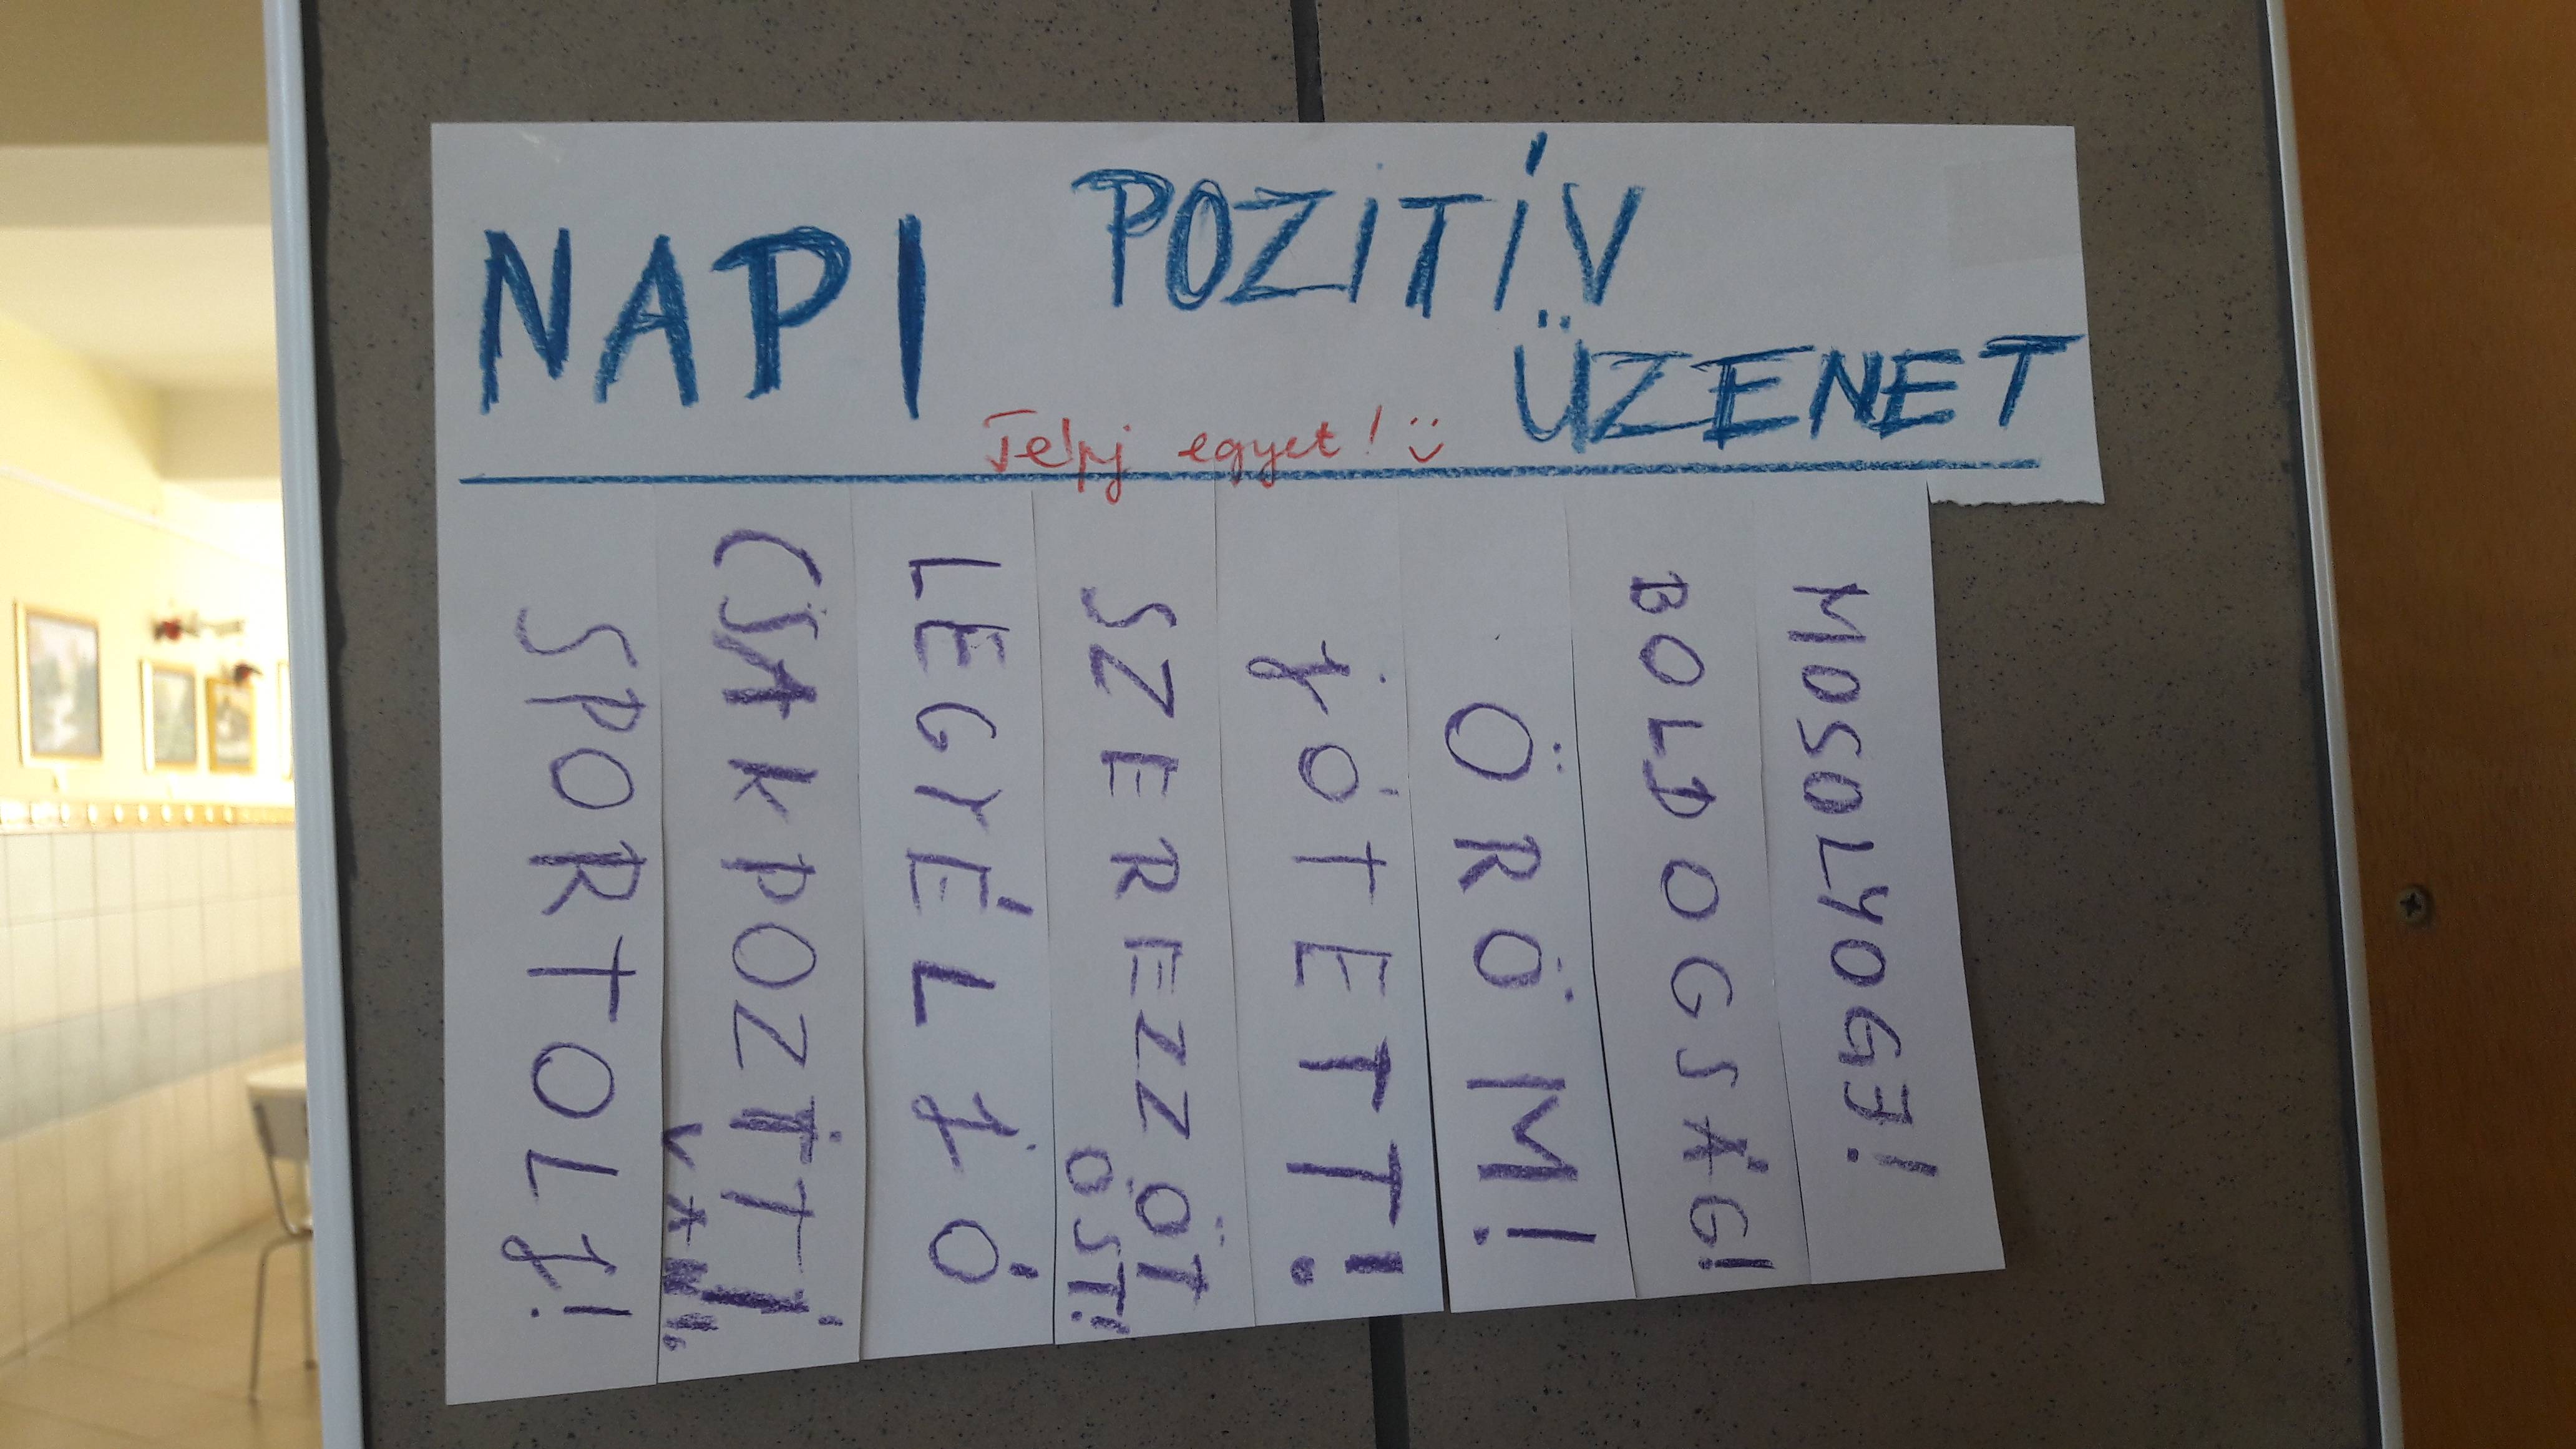 NAPI
POZITÍV
ÜZENET
Tépj egyet! :)
SPORTOLJ!
CSAK POZITÍVAN!
LEGYÉL JÓ
SZEREZZ ÖT
ÖST!
JÓTETT!
ÖRÖM!
BOLDOGSÁG!
MOSOLYOGJ!